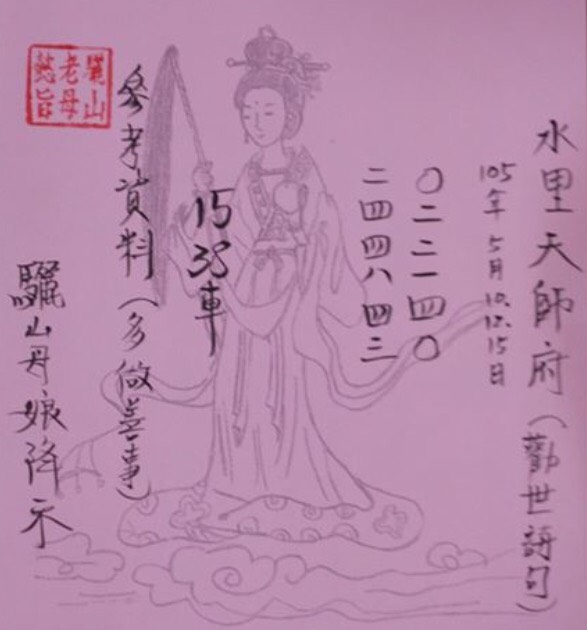 水里天師府(勸世詩句)
105年5月10.12.15日
〇二二一四〇
二四四八四三
15
38車
參考資料(多做善事)
驪山母娘降示
驪山
老母
懿旨